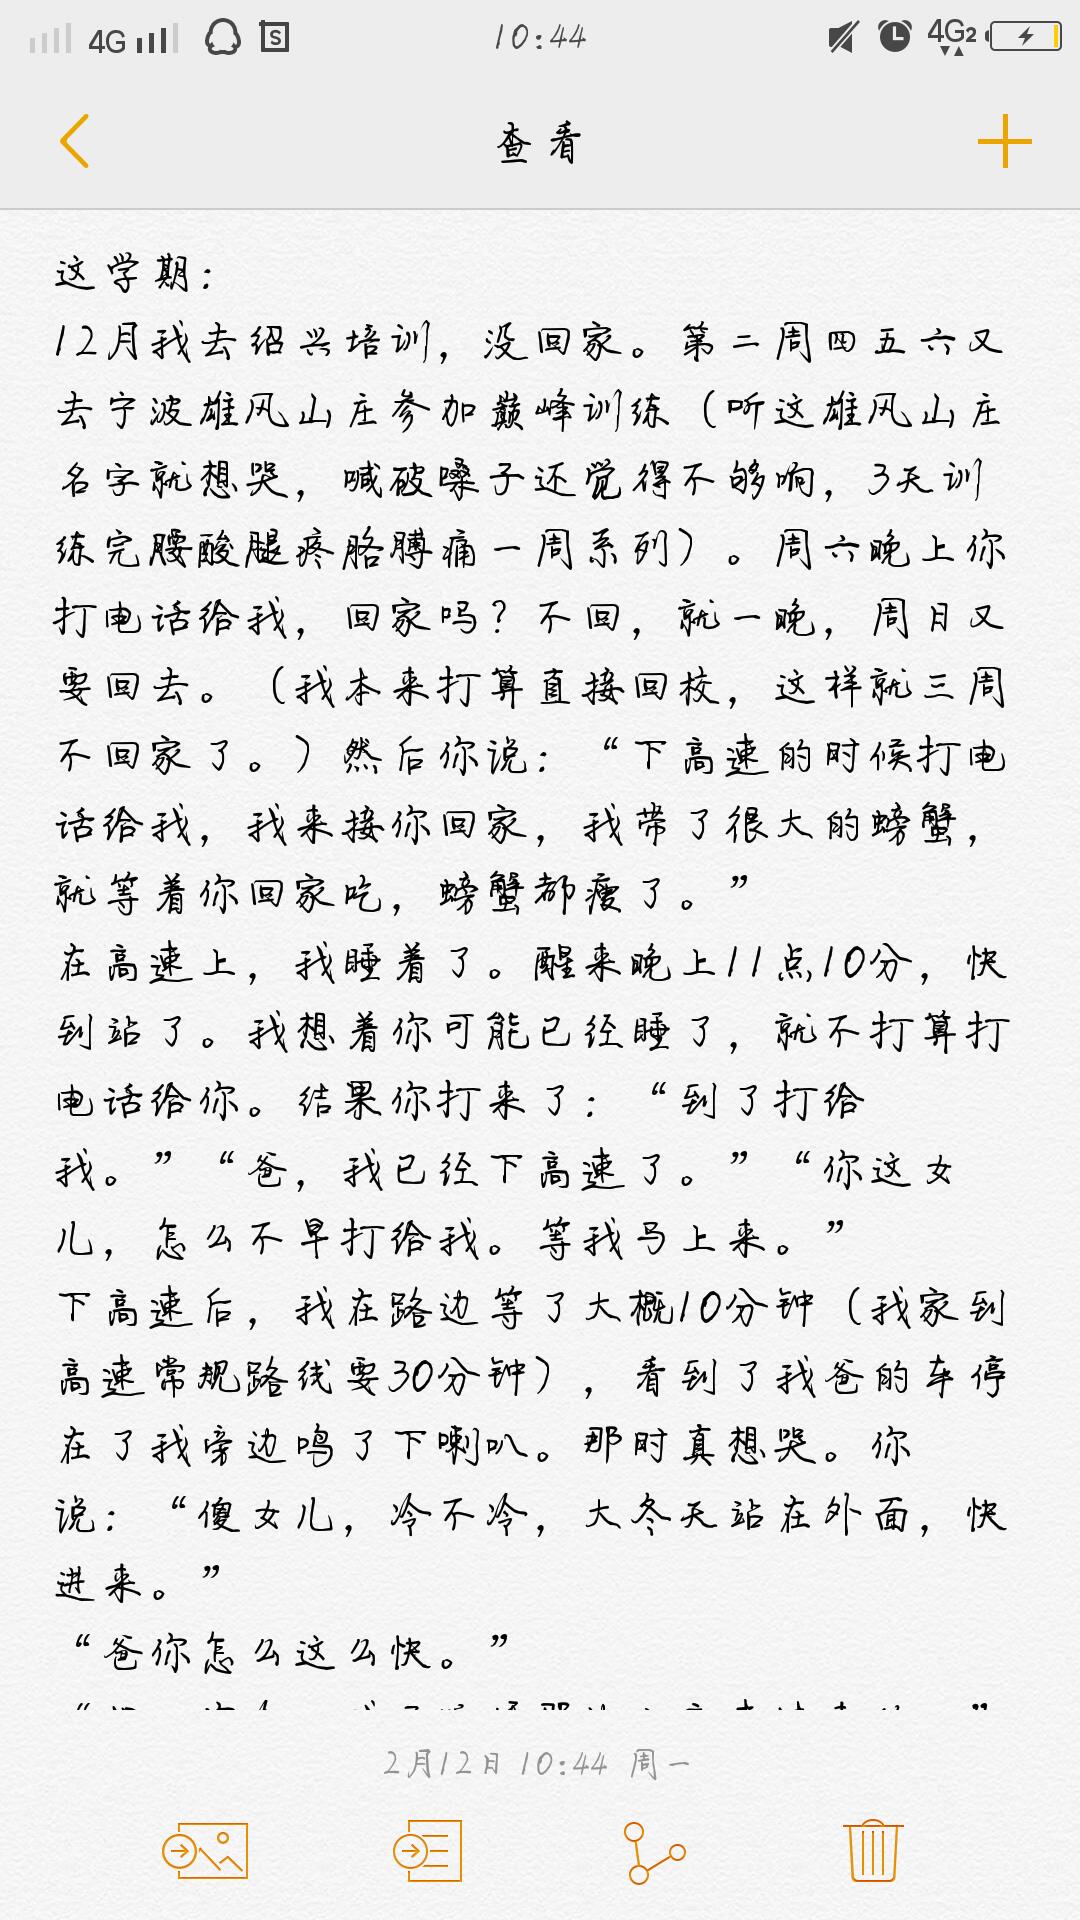 4G S 10:44 4G2
查看
这学期：
12月我去绍兴培训，没回家。第二周四五六又
去宁波雄风山庄参加巅峰训练（听这雄风山庄
名字就想哭，喊破嗓子还觉得不够响，3天训
练完腰酸腿疼胳膊痛一周系列）。周六晚上你
打电话给我，回家吗？不回，就一晚，周日又
要回去。（我本来打算直接回校，这样就三周
不回家了。）然后你说：“下高速的时候打电
话给我，我来接你回家，我带了很大的螃蟹，
就等着你回家吃，螃蟹都瘦了。”
在高速上，我睡着了。醒来晚上11点10分，快
到站了。我想着你可能已经睡了，就不打算打
电话给你。结果你打来了：“到了打给
我。”“爸，我已经下高速了。”“你这女
儿，怎么不早打给我。等我马上来。”
下高速后，我在路边等了大概10分钟（我家到
高速常规路线要30分钟），看到了我爸的车停
在了我旁边鸣了下喇叭。那时真想哭。你
说：“傻女儿，冷不冷，大冬天站在外面，快
进来。”
“爸你怎么这么快。”
2月12日 10:44 周一